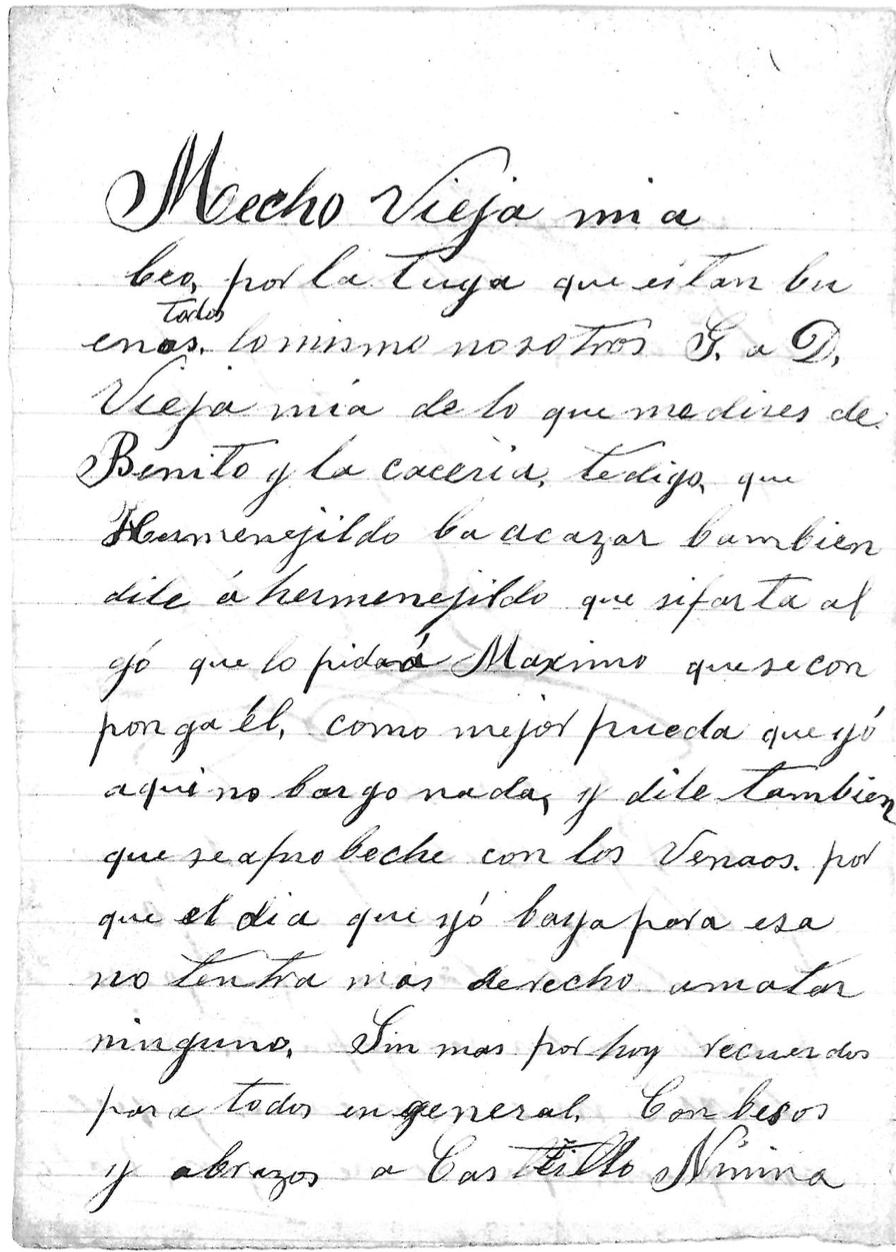 Mecho Vieja mia
beo, por la tuya que estan bu
enos. todos lo mismo nosotros G. a D.
Vieja mia de lo que me dises de
Benito y la caceria, te digo, que
Hermenejildo ba a cazar bambien
dile á hermenejildo que si farta al
gó que lo pida á Maximo que se con
ponga él, como mejor pueda que yó
aqui no bargo nada, y dile tambien
que se aprobeche con los Venaos. por
que el dia que yó baya para esa
no tentra mas derecho a matar
ninguno. Sin mas por hoy recuerdos
para todos en general. Con besos
y abrazos a Castillo Ninina